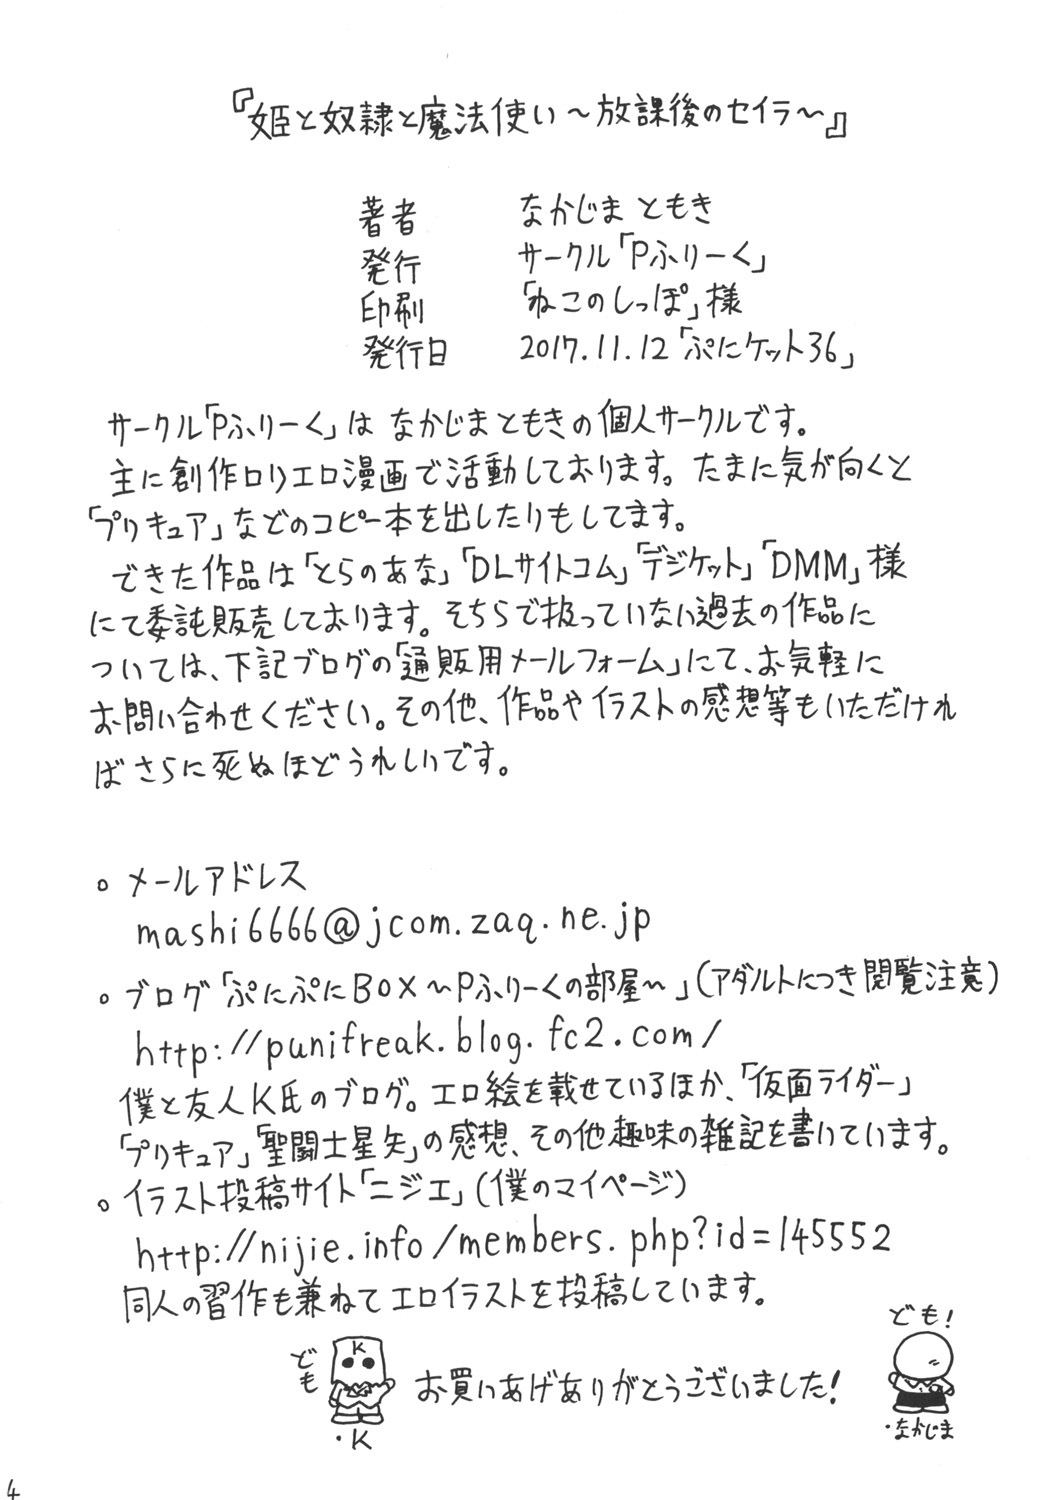 『姫と奴隷と魔法使い～放課後のセイラ～』
著者 なかじま ともき
発行 サークル「Pふりーく」
印刷 「ねこのしっぽ」様
発行日 2017.11.12「ぷにケット36」
サークル「Pふりーく」は なかじまともきの個人サークルです。
主に創作ロリエロ漫画で活動しております。たまに気が向くと
「プリキュア」などのコピー本を出したりもしてます。
できた作品は「とらのあな」「DLサイトコム」「デジケット」「DMM」様
にて委託販売しております。そちらで扱っていない過去の作品に
ついては、下記ブログの「通販用メールフォーム」にて、お気軽に
お問い合わせください。その他、作品やイラストの感想等もいただけれ
ばさらに死ぬほどうれしいです。
○ メールアドレス
mashi6666@jcom.zaq.ne.jp
○ ブログ「ぷにぷにBOX～Pふりーくの部屋～」(アダルトにつき閲覧注意)
http://punifreak.blog.fc2.com/
僕と友人K氏のブログ。エロ絵を載せているほか、「仮面ライダー」
「プリキュア」「聖闘士星矢」の感想、その他趣味の雑記を書いています。
○ イラスト投稿サイト「ニジエ」(僕のマイページ)
http://nijie.info/members.php?id=145552
同人の習作も兼ねてエロイラストを投稿しています。
ども
K
・K
お買いあげありがとうございました!
ども!
・なかじま
4